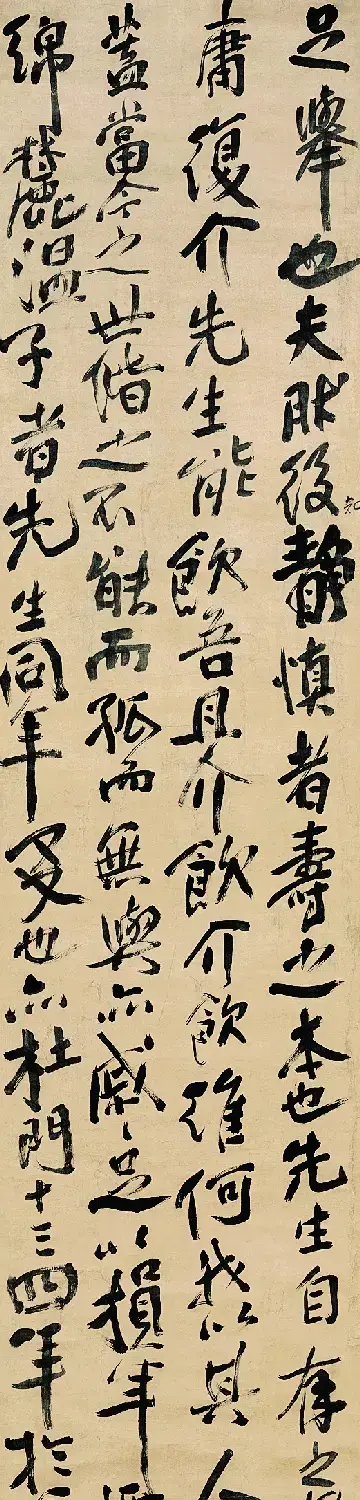 足舉也夫然後靜慎者壽之本也先生自存之
庸復介先生能飲吾且介飲介飲維何我以其人
蓋當今之世偕之不能而孤而無與亦戚〻足以損年
綿麓溫子者先生同年友也亦杜門十三四年於